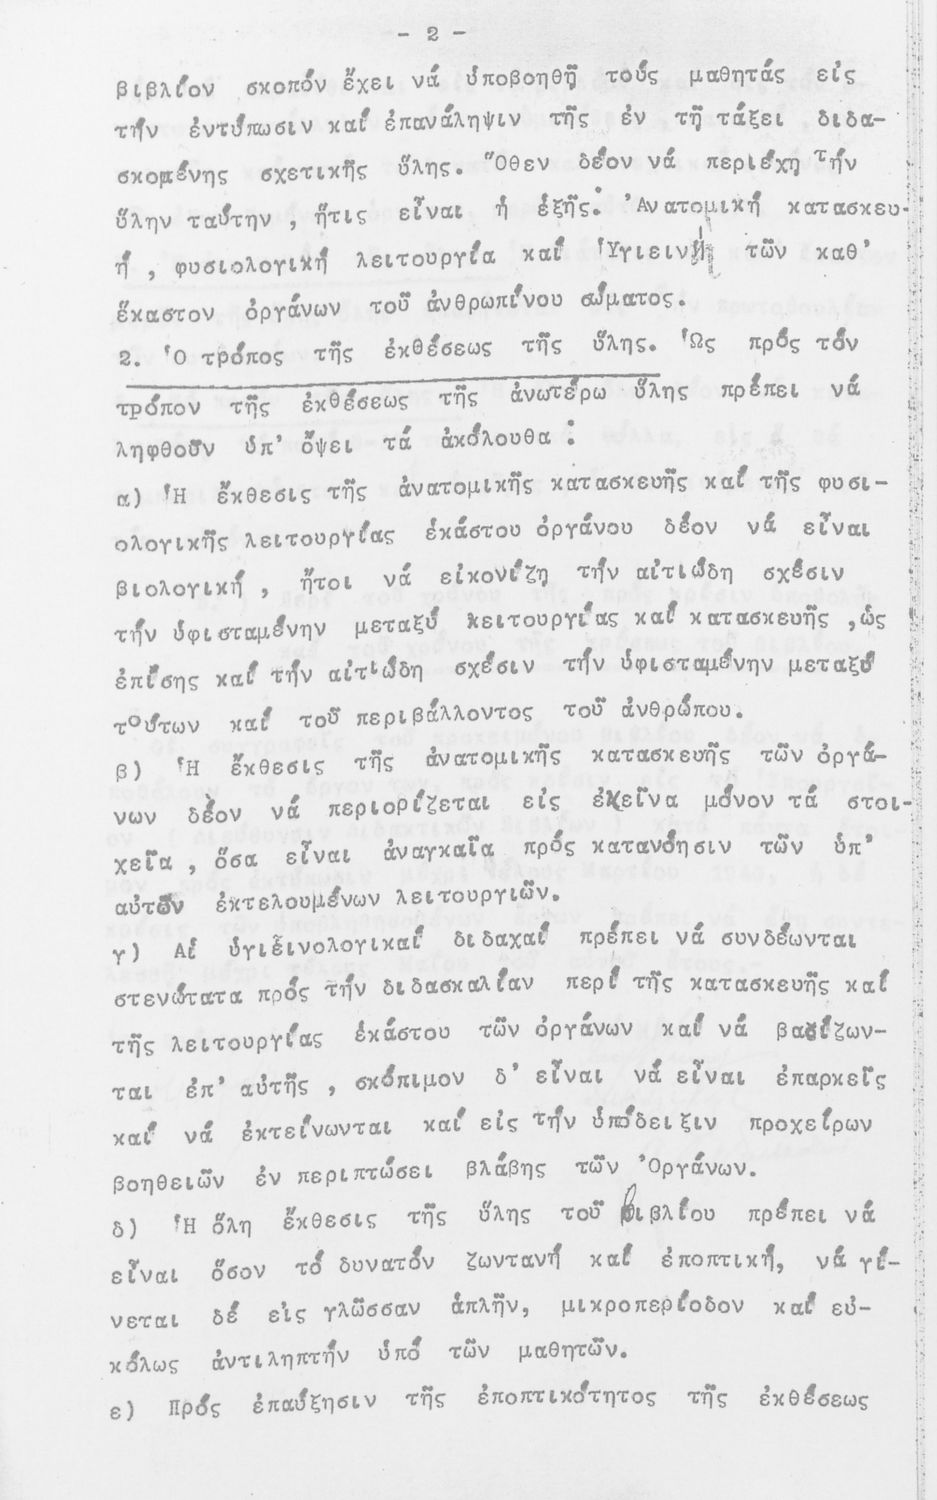 - 2 -
βιβλίον σκοπόν ἔχει νά ὑποβοηθῇ τούς μαθητάς εἰς
τήν ἐντύπωσιν καί ἐπανάληψιν τῆς ἐν τῇ τάξει διδα-
σκομένης σχετικῆς ὕλης. Ὅθεν δέον νά περιέχη τήν
ὕλην ταύτην , ἥτις εἶναι ἡ ἑξῆς: Ἀνατομική κατασκευ-
ή , φυσιολογική λειτουργία καί Ὑγιεινή τῶν καθ'
ἕκαστον ὀργάνων τοῦ ἀνθρωπίνου σώματος.
2. Ὁ τρόπος τῆς ἐκθέσεως τῆς ὕλης. Ὡς πρός τόν
τρόπον τῆς ἐκθέσεως τῆς ἀνωτέρω ὕλης πρέπει νά
ληφθοῦν ὑπ' ὄψει τά ἀκόλουθα :
α) Ἡ ἔκθεσις τῆς ἀνατομικῆς κατασκευῆς καί τῆς φυσι-
ολογικῆς λειτουργίας ἑκάστου ὀργάνου δέον νά εἶναι
βιολογική , ἤτοι νά εἰκονίζη τήν αἰτιώδη σχέσιν
τήν ὑφισταμένην μεταξύ λειτουργίας καί κατασκευῆς ,ὡς
ἐπίσης καί τήν αἰτιώδη σχέσιν τήν ὑφισταμένην μεταξύ
τούτων καί τοῦ περιβάλλοντος τοῦ ἀνθρώπου.
β) Ἡ ἔκθεσις τῆς ἀνατομικῆς κατασκευῆς τῶν ὀργά-
νων δέον νά περιορίζεται εἰς ἐκεῖνα μόνον τά στοι-
χεῖα , ὅσα εἶναι ἀναγκαῖα πρός κατανόησιν τῶν ὑπ'
αὐτῶν ἐκτελουμένων λειτουργιῶν.
γ) Αἱ ὑγιεινολογικαί διδαχαί πρέπει νά συνδέωνται
στενώτατα πρός τήν διδασκαλίαν περί τῆς κατασκευῆς καί
τῆς λειτουργίας ἑκάστου τῶν ὀργάνων καί νά βασίζων-
ται ἐπ' αὐτῆς , σκόπιμον δ' εἶναι νά εἶναι ἐπαρκεῖς
καί νά ἐκτείνωνται καί εἰς τήν ὑπόδειξιν προχείρων
βοηθειῶν ἐν περιπτώσει βλάβης τῶν Ὀργάνων.
δ) Ἡ ὅλη ἔκθεσις τῆς ὕλης τοῦ βιβλίου πρέπει νά
εἶναι ὅσον τό δυνατόν ζωντανή καί ἐποπτική, νά γί-
νεται δέ εἰς γλῶσσαν ἁπλῆν, μικροπερίοδον καί εὐ-
κόλως ἀντιληπτήν ὑπό τῶν μαθητῶν.
ε) Πρός ἐπαύξησιν τῆς ἐποπτικότητος τῆς ἐκθέσεως